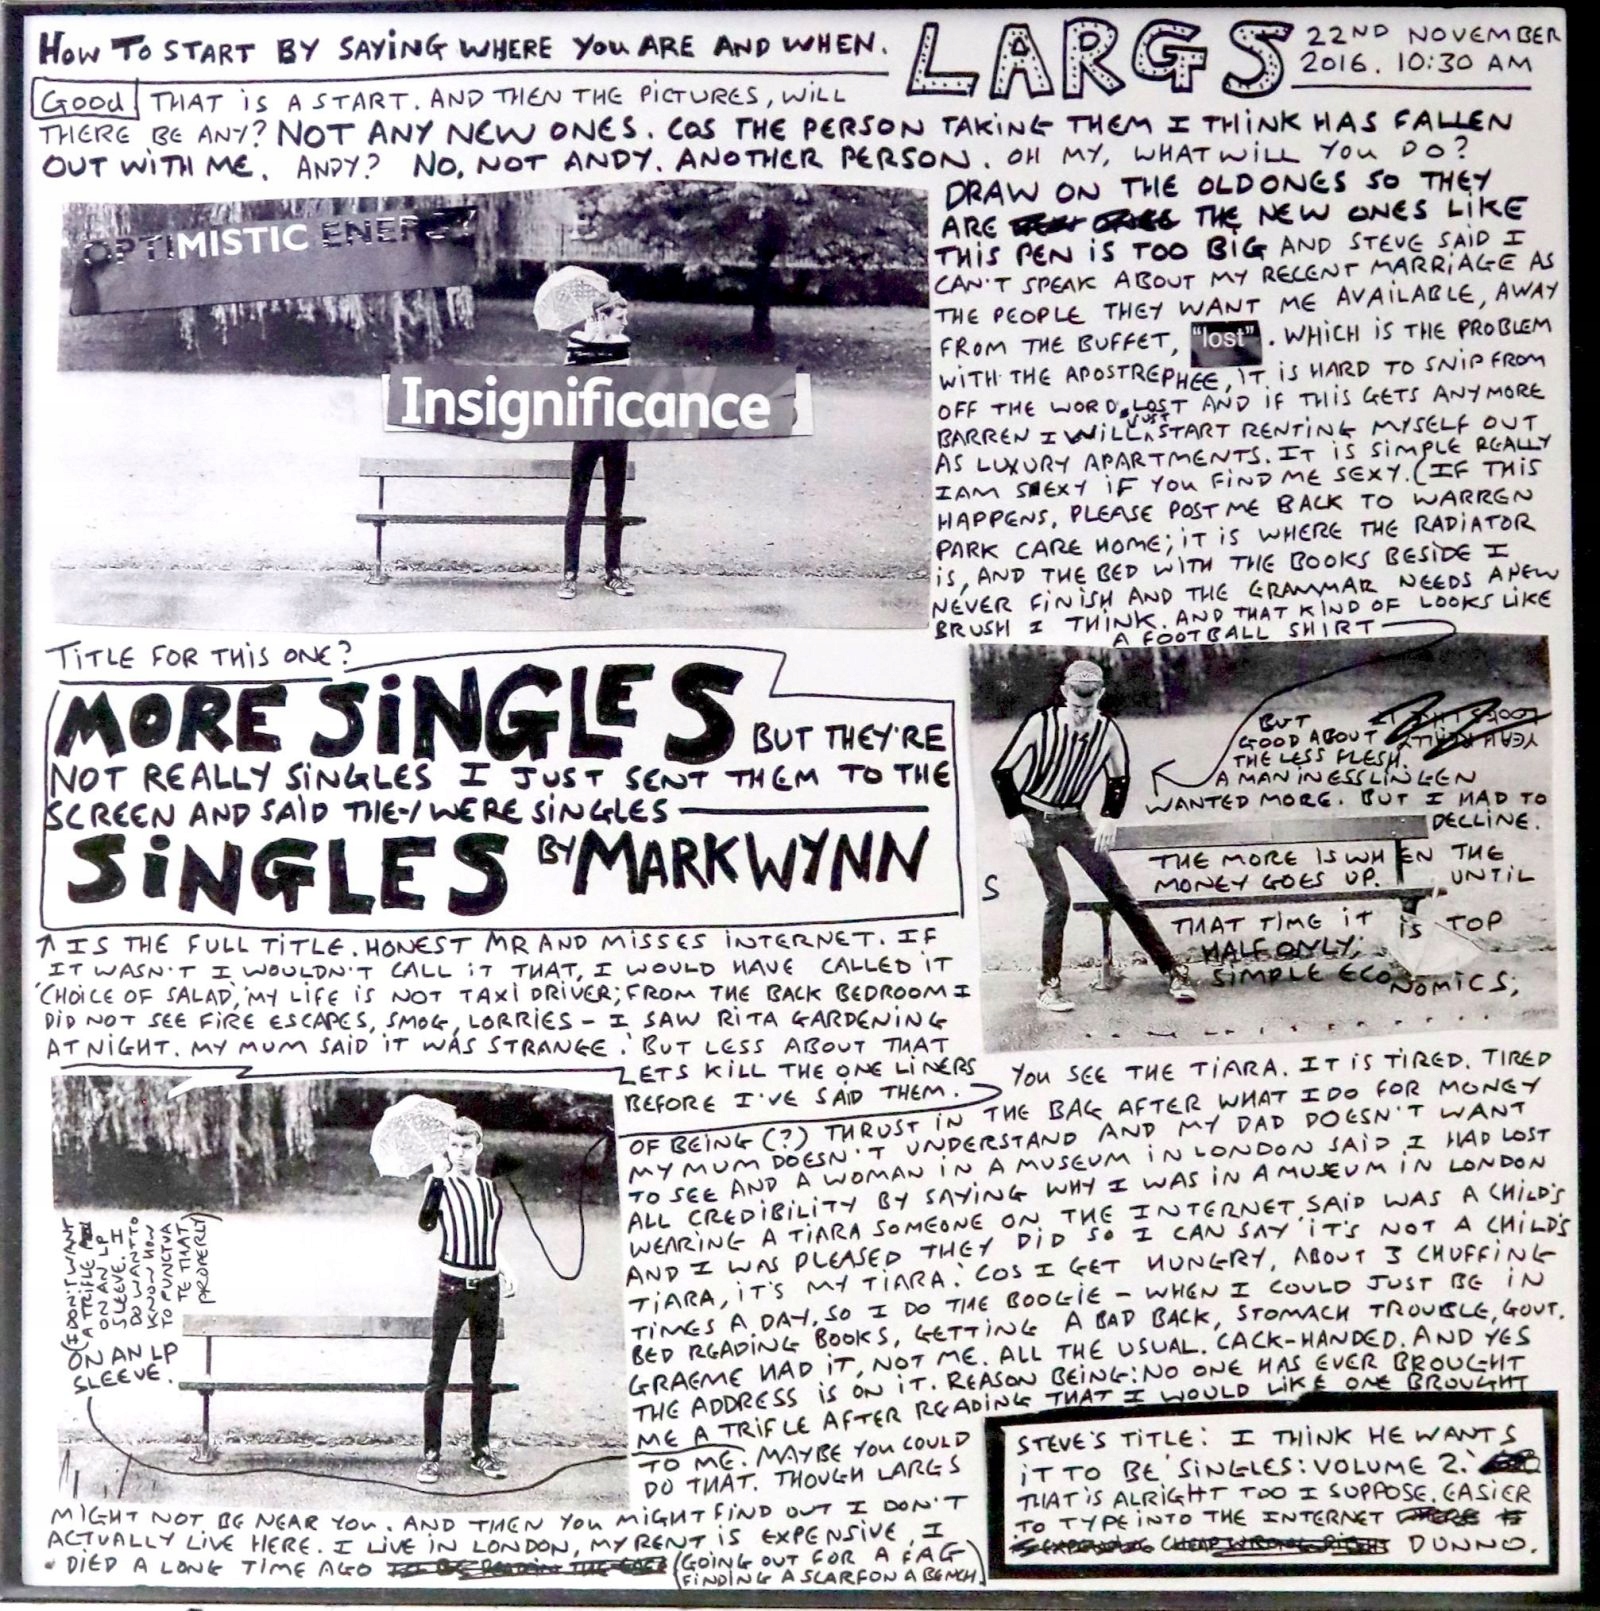 HOW TO START BY SAYING WHERE YOU ARE AND WHEN.
LARGS
22ND NOVEMBER
2016. 10:30 AM
Good THAT IS A START. AND THEN THE PICTURES, WILL
THERE BE ANY? NOT ANY NEW ONES. COS THE PERSON TAKING THEM I THINK HAS FALLEN
OUT WITH ME. ANDY? NO, NOT ANDY. ANOTHER PERSON. OH MY, WHAT WILL YOU DO?
DRAW ON THE OLD ONES SO THEY
ARE THE NEW ONES LIKE
THIS PEN IS TOO BIG AND STEVE SAID I
CAN'T SPEAK ABOUT MY RECENT MARRIAGE AS
THE PEOPLE THEY WANT ME AVAILABLE, AWAY
FROM THE BUFFET, "lost". WHICH IS THE PROBLEM
WITH THE APOSTREPHEE, IT IS HARD TO SNIP FROM
OFF THE WORD LOST AND IF THIS GETS ANYMORE
BARREN I WILL JUST START RENTING MYSELF OUT
AS LUXURY APARTMENTS. IT IS SIMPLE REALLY
I AM SEXY IF YOU FIND ME SEXY. (IF THIS
HAPPENS, PLEASE POST ME BACK TO WARREN
PARK CARE HOME; IT IS WHERE THE RADIATOR
IS, AND THE BED WITH THE BOOKS BESIDE I
NEVER FINISH AND THE GRAMMAR NEEDS A NEW
BRUSH I THINK. AND THAT KIND OF LOOKS LIKE
A FOOTBALL SHIRT
OPTIMISTIC ENERGY
Insignificance
TITLE FOR THIS ONE?
MORE SINGLES BUT THEY'RE
NOT REALLY SINGLES I JUST SENT THEM TO THE
SCREEN AND SAID THEY WERE SINGLES
SINGLES BY MARK WYNN
BUT
GOOD ABOUT
THE LESS FLESH.
YEAH REALLY
A MAN IN ESSLINGEN
WANTED MORE. BUT I HAD TO
DECLINE.
THE MORE IS WHEN THE
MONEY GOES UP. UNTIL
S
THAT TIME IT IS TOP
HALF ONLY;
SIMPLE ECONOMICS;
↑ IS THE FULL TITLE. HONEST MR AND MISSES INTERNET. IF
IT WASN'T I WOULDN'T CALL IT THAT, I WOULD HAVE CALLED IT
'CHOICE OF SALAD,' 'MY LIFE IS NOT TAXI DRIVER; FROM THE BACK BEDROOM I
DID NOT SEE FIRE ESCAPES, SMOG, LORRIES - I SAW RITA GARDENING
AT NIGHT. MY MUM SAID IT WAS STRANGE.' BUT LESS ABOUT THAT
LETS KILL THE ONE LINERS
BEFORE I'VE SAID THEM.
YOU SEE THE TIARA. IT IS TIRED. TIRED
OF BEING (?) THRUST IN THE BAG AFTER WHAT I DO FOR MONEY
MY MUM DOESN'T UNDERSTAND AND MY DAD DOESN'T WANT
TO SEE AND A WOMAN IN A MUSEUM IN LONDON SAID I HAD LOST
ALL CREDIBILITY BY SAYING WHY I WAS IN A MUSEUM IN LONDON
WEARING A TIARA SOMEONE ON THE INTERNET SAID WAS A CHILD'S
AND I WAS PLEASED THEY DID SO I CAN SAY 'IT'S NOT A CHILD'S
TIARA, IT'S MY TIARA.' COS I GET HUNGRY, ABOUT 3 CHUFFING
TIMES A DAY, SO I DO THE BOOGIE - WHEN I COULD JUST BE IN
BED READING BOOKS, GETTING A BAD BACK, STOMACH TROUBLE, GOUT.
GRAEME HAD IT, NOT ME. ALL THE USUAL. CACK-HANDED. AND YES
THE ADDRESS IS ON IT. REASON BEING: NO ONE HAS EVER BROUGHT
ME A TRIFLE AFTER READING THAT I WOULD LIKE ONE BROUGHT
TO ME. MAYBE YOU COULD
DO THAT. THOUGH LARGS
MIGHT NOT BE NEAR YOU. AND THEN YOU MIGHT FIND OUT I DON'T
ACTUALLY LIVE HERE. I LIVE IN LONDON, MY RENT IS EXPENSIVE, I
DIED A LONG TIME AGO (GOING OUT FOR A FAG
FINDING A SCARF ON A BENCH.)
(I DON'T WANT
A TRIFLE
ON AN LP
SLEEVE. I
DO WANT TO
KNOW HOW
TO PUNCTUA
TE THAT
PROPERLY)
ON AN LP
SLEEVE.
STEVE'S TITLE: I THINK HE WANTS
IT TO BE 'SINGLES: VOLUME 2.'
THAT IS ALRIGHT TOO I SUPPOSE. EASIER
TO TYPE INTO THE INTERNET
DUNNO.